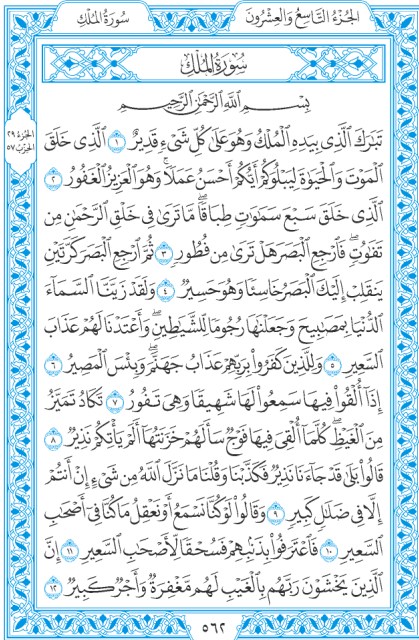 سُورَةُ المُلْكِ
الجُزْءُ التَّاسِعُ وَالعِشْرُونَ
سُورَةُ المُلْكِ
بِسْمِ اللَّهِ الرَّحْمَٰنِ الرَّحِيمِ
الجزء ٢٩
الحزب ٥٧
تَبَٰرَكَ ٱلَّذِي بِيَدِهِ ٱلْمُلْكُ وَهُوَ عَلَىٰ كُلِّ شَيْءٍ قَدِيرٌ ١ ٱلَّذِي خَلَقَ
ٱلْمَوْتَ وَٱلْحَيَوٰةَ لِيَبْلُوَكُمْ أَيُّكُمْ أَحْسَنُ عَمَلًا ۚ وَهُوَ ٱلْعَزِيزُ ٱلْغَفُورُ ٢
ٱلَّذِي خَلَقَ سَبْعَ سَمَٰوَٰتٍ طِبَاقًا ۖ مَّا تَرَىٰ فِي خَلْقِ ٱلرَّحْمَٰنِ مِن
تَفَٰوُتٍ ۖ فَٱرْجِعِ ٱلْبَصَرَ هَلْ تَرَىٰ مِن فُطُورٍ ٣ ثُمَّ ٱرْجِعِ ٱلْبَصَرَ كَرَّتَيْنِ
يَنقَلِبْ إِلَيْكَ ٱلْبَصَرُ خَاسِئًا وَهُوَ حَسِيرٌ ٤ وَلَقَدْ زَيَّنَّا ٱلسَّمَآءَ
ٱلدُّنْيَا بِمَصَٰبِيحَ وَجَعَلْنَٰهَا رُجُومًا لِّلشَّيَٰطِينِ ۖ وَأَعْتَدْنَا لَهُمْ عَذَابَ
ٱلسَّعِيرِ ٥ وَلِلَّذِينَ كَفَرُوا۟ بِرَبِّهِمْ عَذَابُ جَهَنَّمَ ۖ وَبِئْسَ ٱلْمَصِيرُ ٦
إِذَآ أُلْقُوا۟ فِيهَا سَمِعُوا۟ لَهَا شَهِيقًا وَهِيَ تَفُورُ ٧ تَكَادُ تَمَيَّزُ
مِنَ ٱلْغَيْظِ ۖ كُلَّمَآ أُلْقِيَ فِيهَا فَوْجٌ سَأَلَهُمْ خَزَنَتُهَآ أَلَمْ يَأْتِكُمْ نَذِيرٌ ٨
قَالُوا۟ بَلَىٰ قَدْ جَآءَنَا نَذِيرٌ فَكَذَّبْنَا وَقُلْنَا مَا نَزَّلَ ٱللَّهُ مِن شَيْءٍ إِنْ أَنتُمْ
إِلَّا فِي ضَلَٰلٍ كَبِيرٍ ٩ وَقَالُوا۟ لَوْ كُنَّا نَسْمَعُ أَوْ نَعْقِلُ مَا كُنَّا فِيٓ أَصْحَٰبِ
ٱلسَّعِيرِ ١٠ فَٱعْتَرَفُوا۟ بِذَنۢبِهِمْ فَسُحْقًا لِّأَصْحَٰبِ ٱلسَّعِيرِ ١١ إِنَّ
ٱلَّذِينَ يَخْشَوْنَ رَبَّهُم بِٱلْغَيْبِ لَهُم مَّغْفِرَةٌ وَأَجْرٌ كَبِيرٌ ١٢
٥٦٢